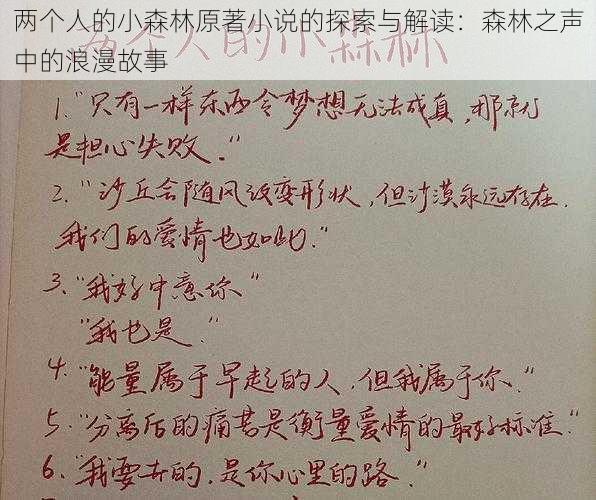 两个人的小森林原著小说的探索与解读：森林之声
中的浪漫故事
两个人的小森林
1."只有一样东西令梦想无法成真，那就
是担心失败。"
2."沙丘会随风改变形状，但沙漠永远存在.
我们的爱情也如此."
3."我好中意你"
"我也是."
4."能量属于早起的人，但我属于你."
5."分离后的痛苦是衡量爱情的最好标准."
6."我要去的，是你心里的路."